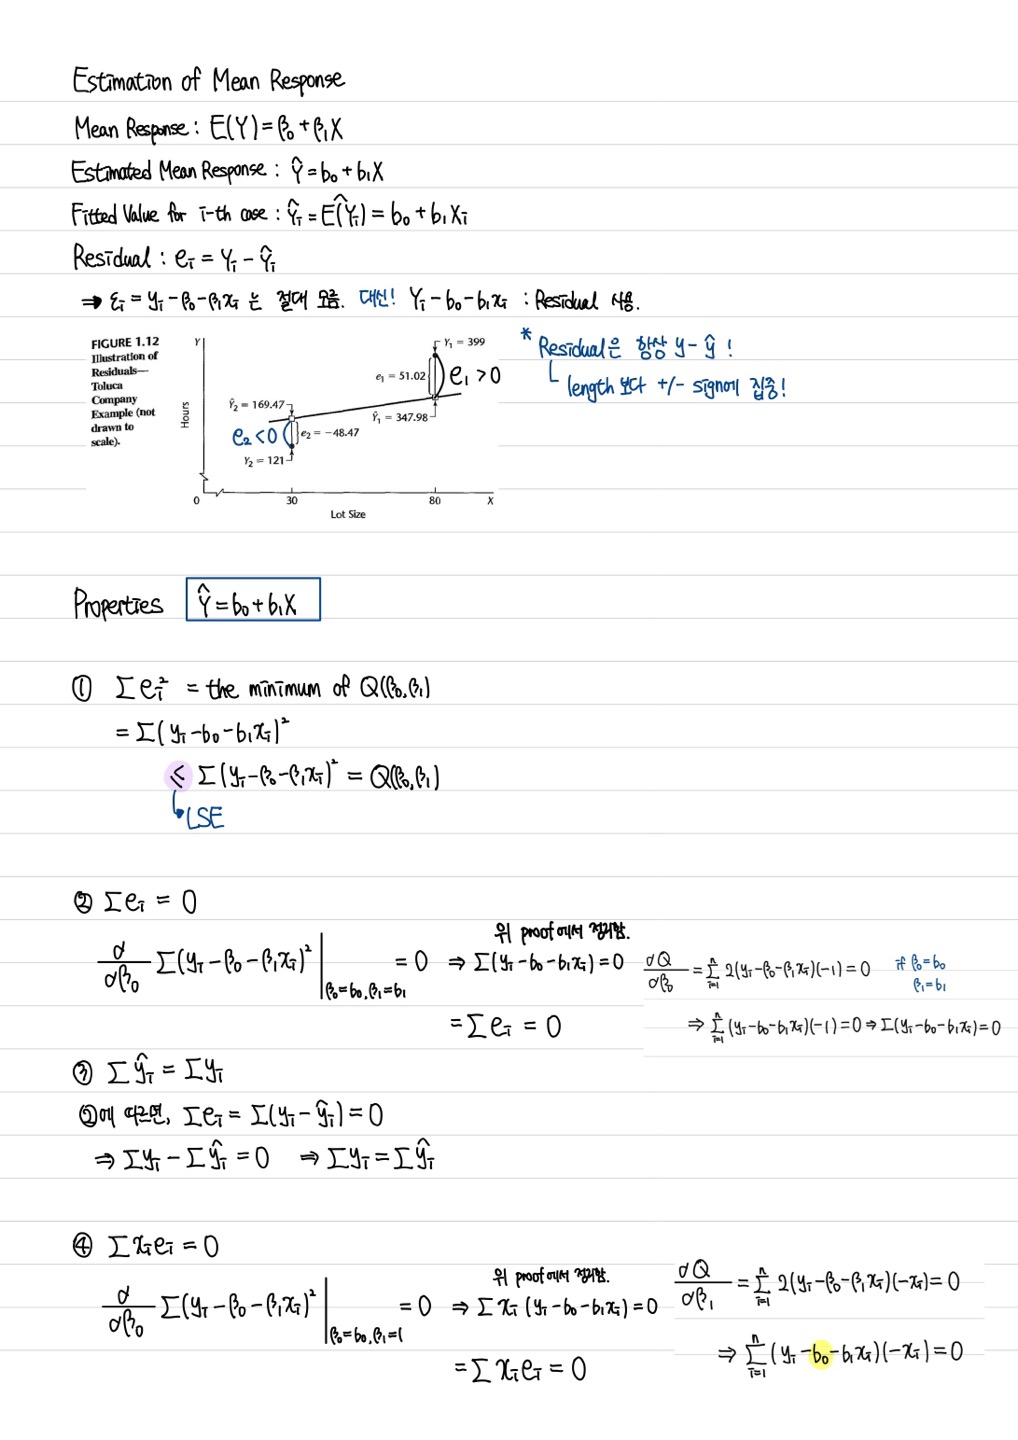 Estimation of Mean Response
Mean Response : E(Y) = β₀ + β₁X
Estimated Mean Response : Ŷ = b₀ + b₁X
Fitted Value for i-th case : Ŷᵢ = Ê(Yᵢ) = b₀ + b₁Xᵢ
Residual : eᵢ = Yᵢ - Ŷᵢ
⇒ εᵢ = yᵢ - β₀ - β₁xᵢ 는 절대 모름. 대신! Yᵢ - b₀ - b₁xᵢ : Residual 사용.
FIGURE 1.12
Illustration of
Residuals—
Toluca
Company
Example (not
drawn to
scale).
Y
Hours
Y₁ = 399
e₁ = 51.02
e₁ > 0
Ŷ₂ = 169.47
Ŷ₁ = 347.98
e₂ < 0
e₂ = −48.47
Y₂ = 121
0 30 80 X
Lot Size
* Residual은 항상 y - ŷ !
length 보다 +/- sign에 집중!
Properties Ŷ = b₀ + b₁X
① Σeᵢ² = the minimum of Q(β₀, β₁)
= Σ(yᵢ - b₀ - b₁xᵢ)²
≤ Σ(yᵢ - β₀ - β₁xᵢ)² = Q(β₀, β₁)
LSE
② Σeᵢ = 0
위 proof에서 정리함.
d/dβ₀ Σ(yᵢ - β₀ - β₁xᵢ)² |β₀=b₀, β₁=b₁ = 0 ⇒ Σ(yᵢ - b₀ - b₁xᵢ) = 0
= Σeᵢ = 0
dQ/dβ₀ = Σⁿᵢ₌₁ 2(yᵢ - β₀ - β₁xᵢ)(-1) = 0 if β₀ = b₀
β₁ = b₁
⇒ Σⁿᵢ₌₁ (yᵢ - b₀ - b₁xᵢ)(-1) = 0 ⇒ Σ(yᵢ - b₀ - b₁xᵢ) = 0
③ Σŷᵢ = Σyᵢ
②에 따르면, Σeᵢ = Σ(yᵢ - ŷᵢ) = 0
⇒ Σyᵢ - Σŷᵢ = 0 ⇒ Σyᵢ = Σŷᵢ
④ Σxᵢeᵢ = 0
위 proof에서 정리함.
d/dβ₀ Σ(yᵢ - β₀ - β₁xᵢ)² |β₀=b₀, β₁=( = 0 ⇒ Σxᵢ(yᵢ - b₀ - b₁xᵢ) = 0
= Σxᵢeᵢ = 0
dQ/dβ₁ = Σⁿᵢ₌₁ 2(yᵢ - β₀ - β₁xᵢ)(-xᵢ) = 0
⇒ Σⁿᵢ₌₁ (yᵢ - b₀ - b₁xᵢ)(-xᵢ) = 0